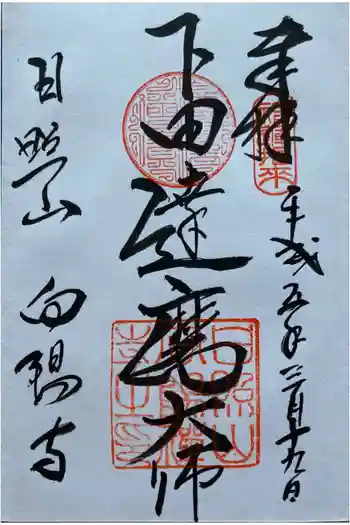 奉拝
平成五年二月十九日
下田達磨大師
日照山 向陽寺